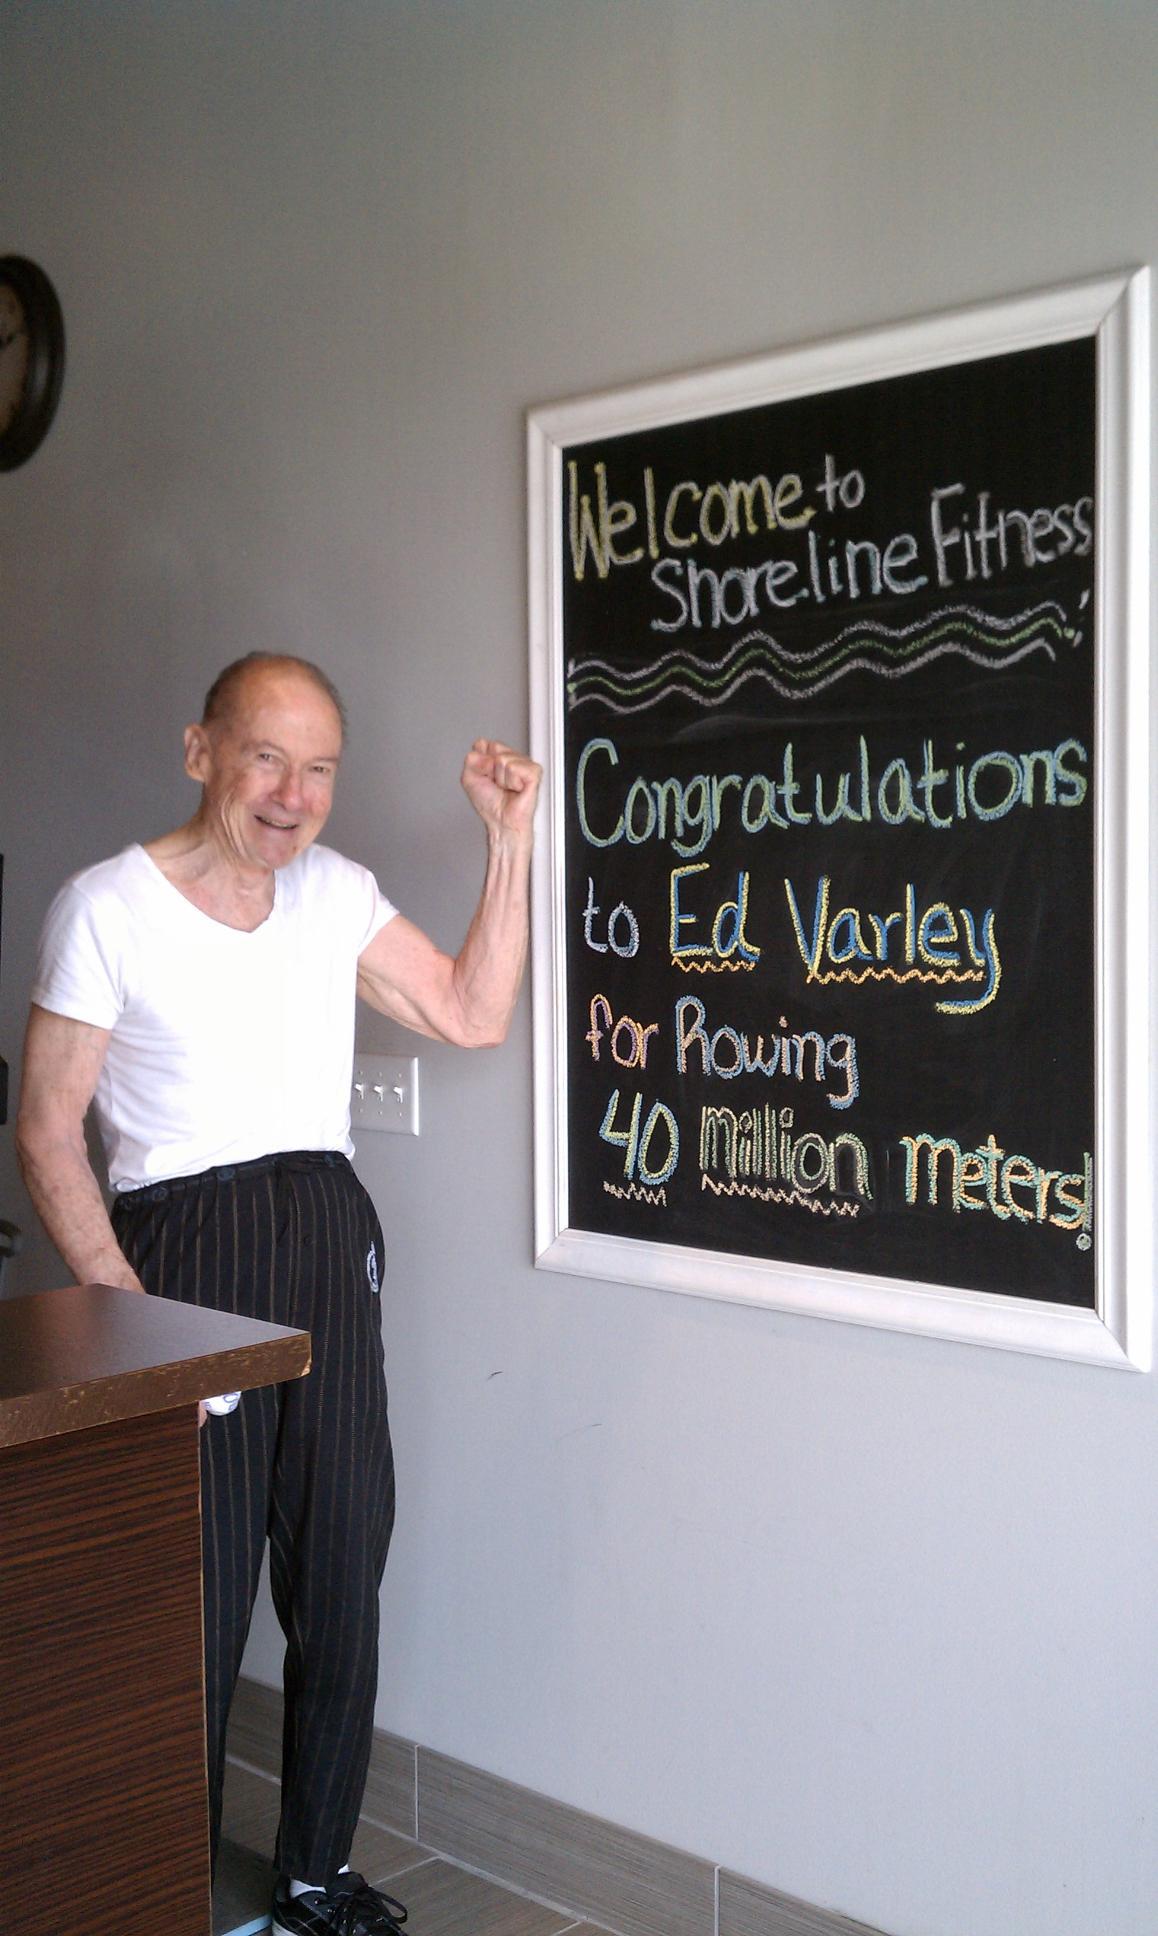 Welcome to
Shoreline Fitness
Congratulations
to Ed Varley
for Rowing
40 million meters!